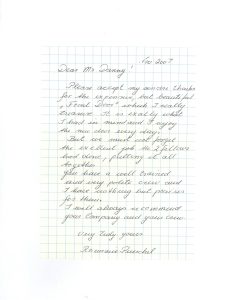 1/10 2007
Dear Mr Danny!
Please accept my sincere thanks
for the expensive, but beautiful
"Front Door" which I really
treasure. It is exactly what
I had in mind and I enjoy
the new door every day.
But we must not forget
the excellent job the fellows
had done, putting it all
together.
You have a well trained
and very polite crew and
I have nothing but praises
for them.
I will always recommend
your Company and your crew.
Very truly yours